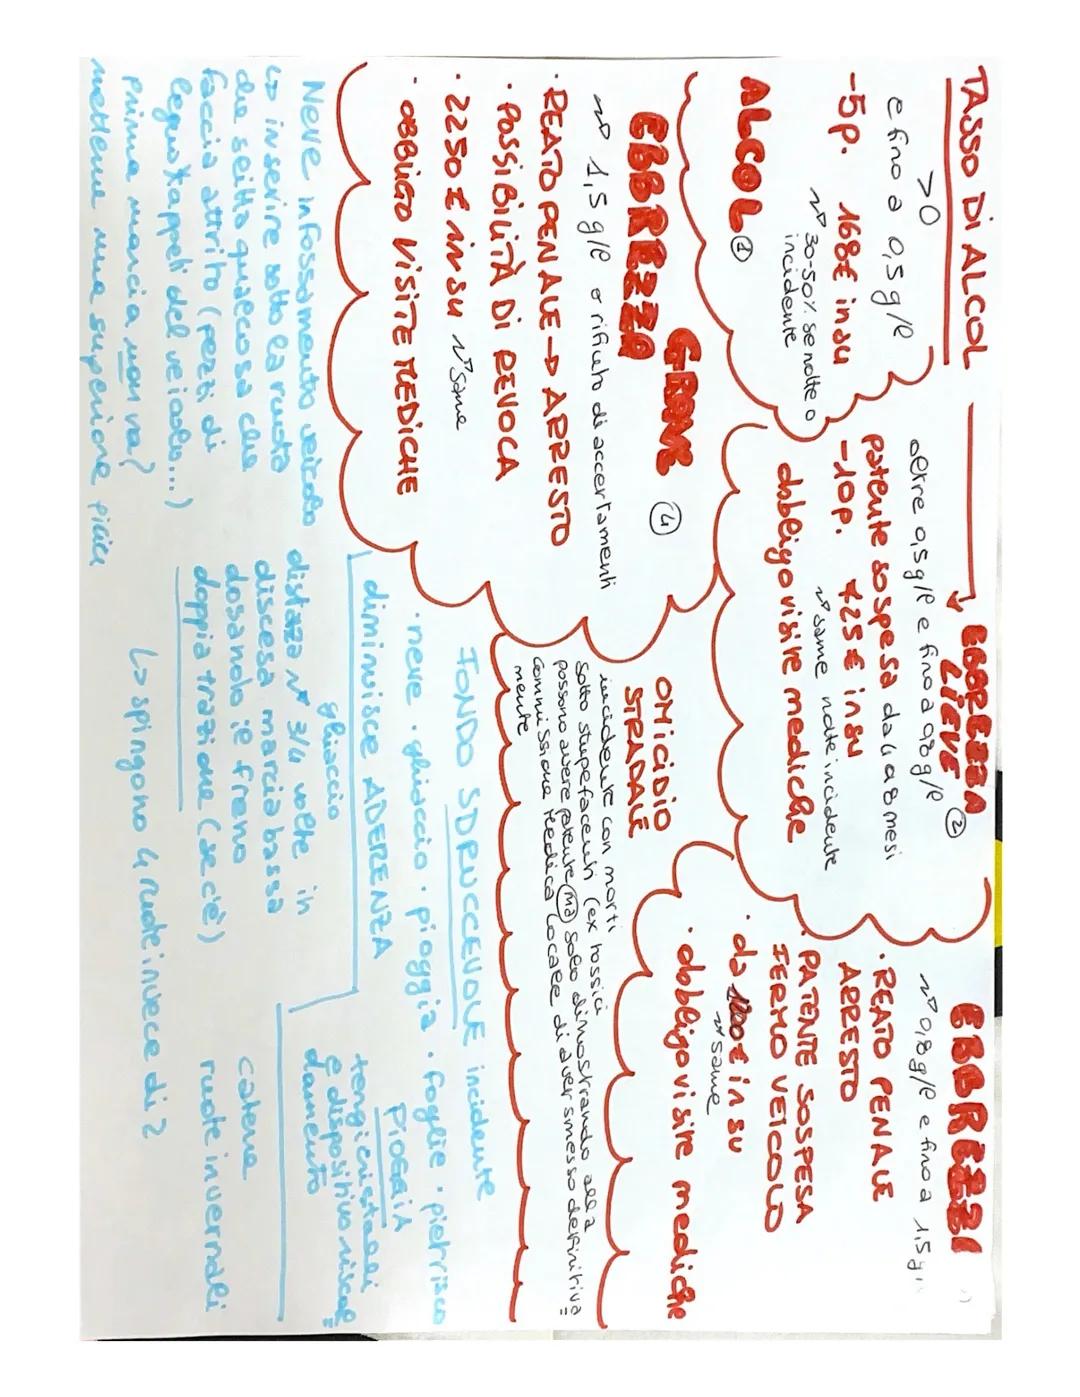 TASSO DI ALCOL
>0
e fino a 0,5g/l
-5p. 168€ in su
~> 30-50% se notte o
incidente
ALCOL ①
EBBREZZA
LIEVE ②
oltre 0,5g/l e fino a 0,8g/l
patente sospesa da 4 a 8 mesi
-10p. 425€ in su
~> same notte incidente
obbligo visite mediche
EBBREZZ
~> 0,8g/l e fino a 1,5g/
· REATO PENALE
ARRESTO
· PATENTE SOSPESA
FERMO VEICOLO
· da € in su
~> same
· obbligo visite mediche
GRAVE
EBBREZZA ④
~> 1,5 g/l o rifiuto di accertamenti
· REATO PENALE -> ARRESTO
· POSSIBILITÀ DI REVOCA
· 2250€ in su ~> same
· OBBLIGO VISITE MEDICHE
OMICIDIO
STRADALE
incidente con morti
sotto stupefacenti (ex tossici
possono avere patente ma solo dimostrando alla
commissione medica locale di aver smesso definitiva=
mente
FONDO SDRUCCEVOLE incidente
· neve · ghiaccio · pioggia · foglie · pietrisco
diminuisce ADERENZA
ghiaccio
distaza ~> 3/4 volte in
discesa marcia bassa
dosando il freno
doppia trazione (se c'è)
↳ spingono 4 ruote invece di 2
PIOGGIA
tergicristalli
e dispositivo riscal=
damento
catene
ruote invernali
Neve infossamento veicolo
↳ inserire sotto la ruota
che slitta qualcosa che
faccia attrito (pezzi di
legno, tappeti del veicolo...)
Prima marcia non va?
metterne una superiore